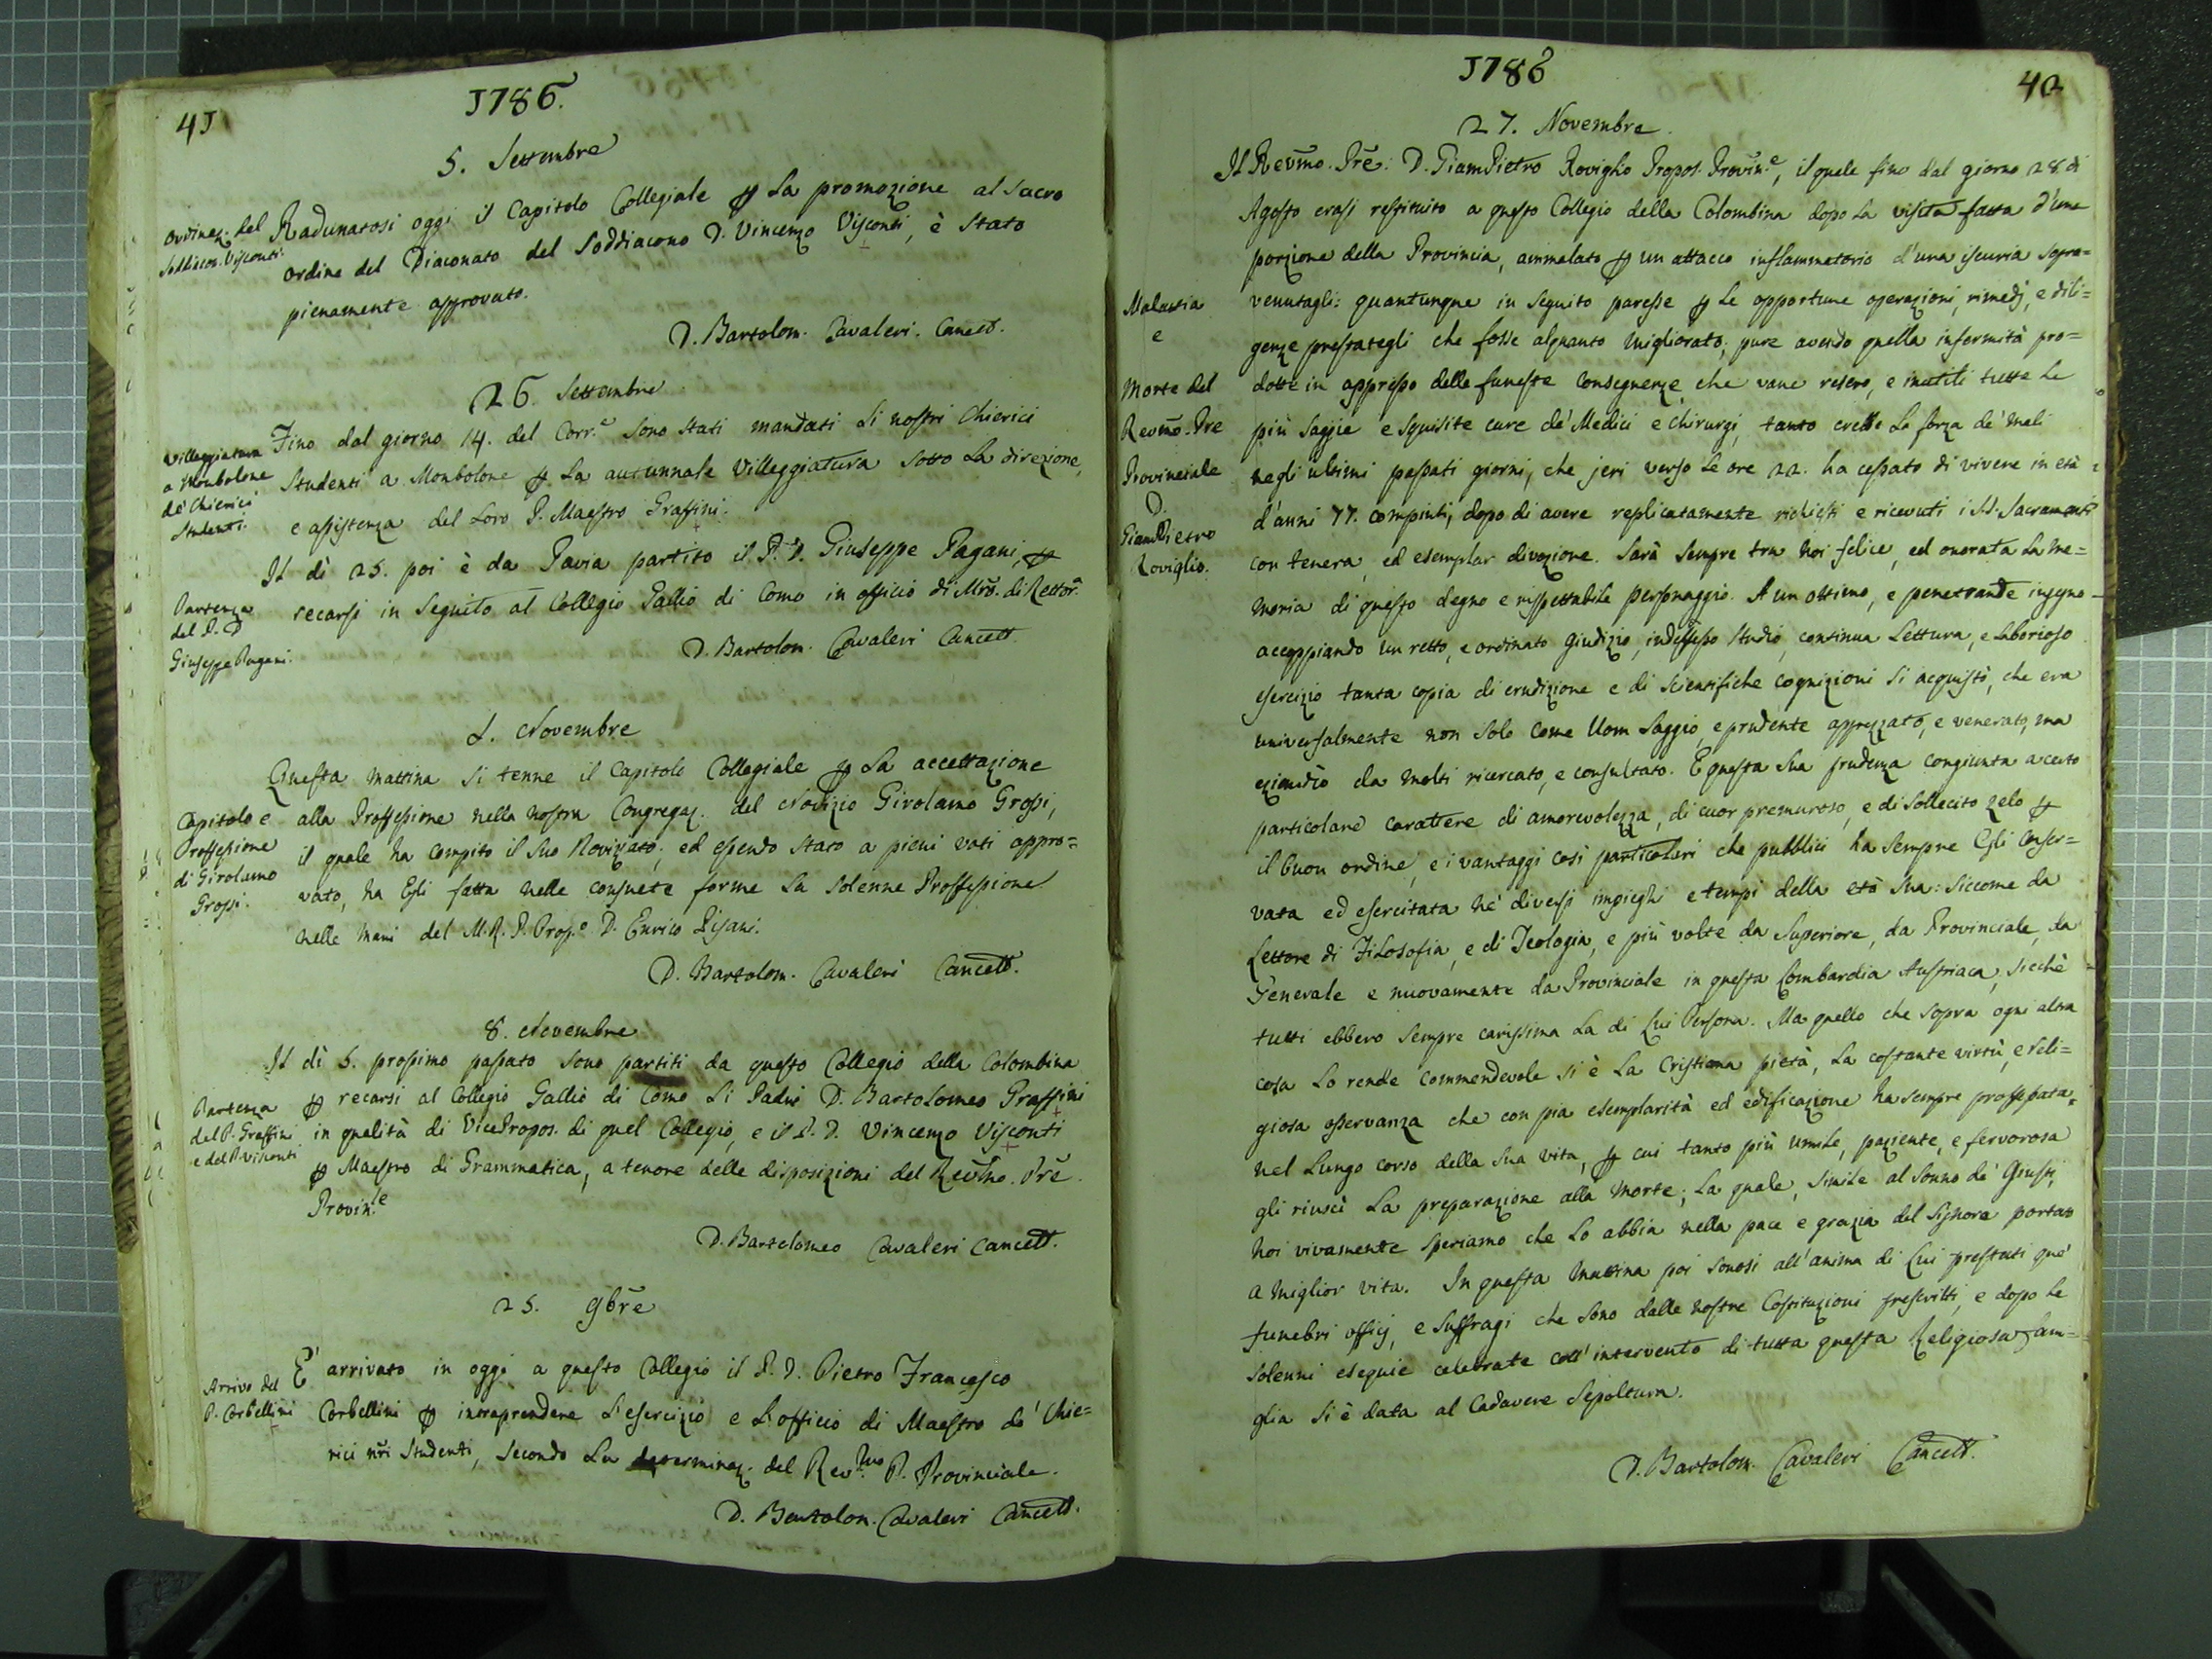 41
1786.
5. Settembre
Ordinaz. del
Soddiacon. Visconti.
Radunatosi oggi il Capitolo Collegiale per la promozione al sacro
ordine del Diaconato del Soddiacono D. Vincenzo Visconti, è stato
pienamente approvato.
D. Bartolom. Cavaleri. Cancell.
26. Settembre
Villeggiatura
a Monbolone
de' Chierici
Studenti.
Fino dal giorno 14. del Corr.e sono stati mandati li nostri Chierici
Studenti a Monbolone per la autunnale Villeggiatura sotto la direzione,
e assistenza del loro P. Maestro Graffini.
Partenza
del P. D.
Giuseppe Pagani.
Il dì 25. poi è da Pavia partito il P. D. Giuseppe Pagani, per
recarsi in seguito al Collegio Gallio di Como in officio di Mrõ. di Rettor.ª
D. Bartolom. Cavaleri Cancell.
1. Novembre
Capitolo e
Professione
di Girolamo
Grossi.
Questa mattina si tenne il Capitolo Collegiale per la accettazione
alla Professione nella nostra Congregaz. del Novizio Girolamo Grossi,
il quale ha compito il suo Noviziato; ed essendo stato a pieni voti appro=
vato, ha Egli fatta nelle consuete forme la solenne Professione
nelle mani del M. R. P. Prop.o D. Enrico Pisani.
D. Bartolom. Cavaleri Cancell.
8. Novembre
Partenza
del P. Graffini
e del P. Visconti
Il dì 5. prossimo passato sono partiti da questo Collegio della Colombina
per recarsi al Collegio Gallio di Como li Padri D. Bartolomeo Graffini
in qualità di VicePropos. di quel Collegio, e il P. D. Vincenzo Visconti
per Maestro di Grammatica, a tenore delle disposizioni del Revm̃o. Prẽ.
Provin.le
D. Bartolomeo Cavaleri Cancell.
25. 9brẽ
Arrivo del
P. Corbellini
E' arrivato in oggi a questo Collegio il P. D. Pietro Francesco
Corbellini per intraprendere l'esercizio e l'officio di Maestro de' Chie=
rici nr̃i Studenti, secondo la determinaz. del Rev.mo P. Provinciale.
D. Bartolom. Cavaleri Cancell.
1786
42
27. Novembre.
Malattia
e
Morte del
Revm̃o. Pre
Provinciale
D.
GiamPietro
Roviglio.
Il Revm̃o. Prẽ: D. GiamPietro Roviglio Propos. Provin.e, il quale fino dal giorno 28. di
Agosto erasi restituito a questo Collegio della Colombina dopo la visita fatta d'una
porzione della Provincia, ammalato per un attacco inflammatorio d'una iscuria sopra=
venutagli: quantunque in seguito paresse per le opportune operazioni, rimedj, e dili=
genze prestategli che fosse alquanto migliorato; pure avendo quella infermità pro=
dotte in appresso delle funeste conseguenze che vane resero, e inutili tutte le
più saggie e squisite cure de' Medici e Chirurgi, tanto crebbe la forza de' mali
negli ultimi passati giorni, che jeri verso le ore 22. ha cessato di vivere in età
d'anni 77. compiuti, dopo di avere replicatamente richiesti e ricevuti i SS. Sacramenti
con tenera, ed esemplar divozione. Sarà sempre tra noi felice, ed onorata la me=
moria di questo degno e rispettabile personaggio. A un ottimo, e penetrante ingegno
accoppiando un retto, e ordinato giudizio, indefesso studio, continua lettura, e laborioso
esercizio tanta copia di erudizione e di scientifiche cognizioni si acquistò, che era
universalmente non solo come Uom saggio, e prudente apprezzato, e venerato, ma
eziandio da molti ricercato, e consultato. E questa sua prudenza congiunta a certo
particolare carattere di amorevolezza, di cuor premuroso, e di sollecito zelo per
il buon ordine, e i vantaggi così particolari che pubblici ha sempre Egli conser=
vata ed esercitata ne' diversi impieghi e tempi della età sua: siccome da
Lettore di Filosofia, e di Teologia, e più volte da Superiore, da Provinciale, da
Generale e nuovamente da Provinciale in questa Lombardia Austriaca, sicchè
tutti ebbero sempre carissima la di Lui Persona. Ma quello che sopra ogni altra
cosa lo rende commendevole si è la Cristiana pietà, la costante virtù, e reli=
giosa osservanza che con pia esemplarità ed edificazione ha sempre professata
nel lungo corso della sua vita, per cui tanto più umile, paziente, e fervorosa
gli riuscì la preparazione alla morte; la quale, simile al sonno de' Giusti,
noi vivamente speriamo che lo abbia nella pace e grazia del Signore portato
a miglior vita. In questa mattina poi sonosi all'anima di Lui prestati que'
funebri officj, e suffragi che sono dalle nostre Costituzioni prescritti, e dopo le
solenni esequie celebrate coll'intervento di tutta questa Religiosa Fam=
glia si è data al Cadavere Sepoltura.
D. Bartolom. Cavaleri Cancell.